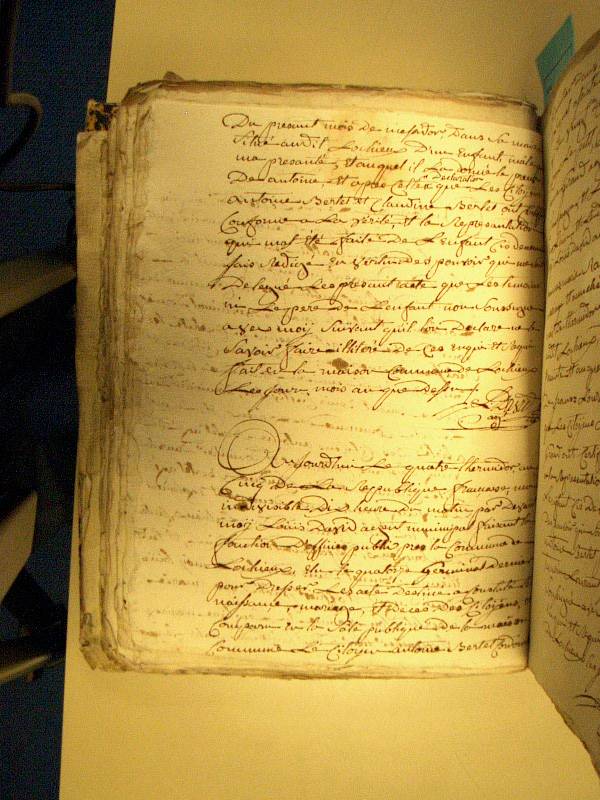 Du present mois de mesidor, Dans sa mais
situé audit Lochieu D'un Enfant, mal
ma presanté, Et auquel il La donné le pren
De antoine, Et apres Celles declaration que Les Citoye
antoine Bertet Et Claudine Bertet ont
Conforme a La Vérité, et la Represantation
qui mat été faite De L'enfant Ci denom
fais Redigé En Vertu des pouvoir qui me
Delegue Les presant acte que Les temoin
ni Le pere De L'enfant non Soussigné
avec moy Suivant quil lon Declare ne
Savoir faire illitéré De Ces enqui Et Requi
fait en la maison Commune de Lochieu
Les jour mois an que dessus
Aujourd'hui Le quatre thermidor an
Cinq De La Republique francaise une
indivisible, Dix heure du matin par devant
moy Louis David agent municipal faisant
fonction D'officier public pres la Commune de
Lochieu Elu le quatorze Germinal dernie
pour Dresser Les acte Destiné a Constater L
naissance, mariage, Et déces Des Citoyens,
Comparu en la Salle publique de la maison
Commune Le Citoyen antoine Bertet